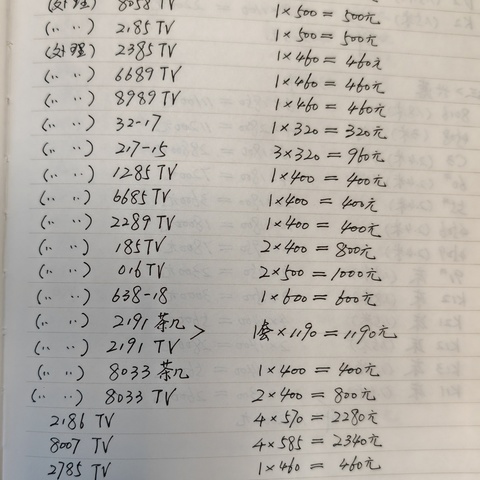 (处理) 8058 TV 1×500=500元
(〃 〃) 2185 TV 1×500=500元
(处理) 2385 TV 1×460=460元
(〃 〃) 6689 TV 1×460=460元
(〃 〃) 8989 TV 1×460=460元
(〃 〃) 32-17 1×320=320元
(〃 〃) 217-15 3×320=960元
(〃 〃) 1285 TV 1×400=400元
(〃 〃) 6685 TV 1×400=400元
(〃 〃) 2289 TV 1×400=400元
(〃 〃) 185 TV 2×400=800元
(〃 〃) 016 TV 2×500=1000元
(〃 〃) 638-18 1×600=600元
(〃 〃) 2191 茶几 > 1套×1190=1190元
(〃 〃) 2191 TV
(〃 〃) 8033 茶几 1×400=400元
(〃 〃) 8033 TV 2×400=800元
2186 TV 4×570=2280元
8007 TV 4×585=2340元
2785 TV 1×460=460元